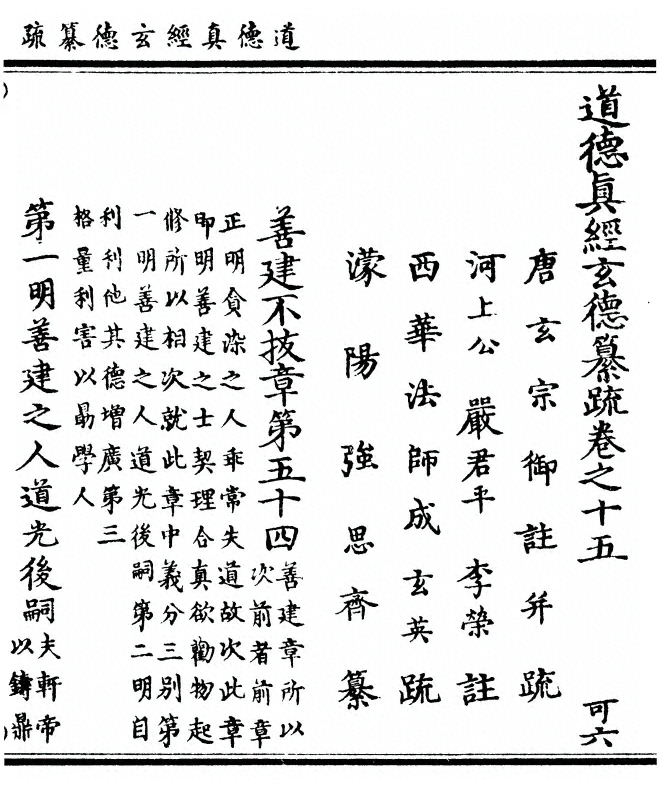 道德真經玄德纂疏
道德眞經玄德纂疏卷之十五 可六
唐玄宗御註并疏
河上公 嚴君平 李榮註
西華法師成玄英疏
濛陽強思齊纂
善建不拔章第五十四 善建章所以
次前者前章
正明貪染之人乖常失道故次此章
即明善建之士契理合真欲勸物起
修所以相次就此章中義分三别第
一明善建之人道光後嗣第二明自
利利他其德增廣第三
格量利害以勗學人
第一明善建之人道光後嗣 夫軒帝
以鑄鼎